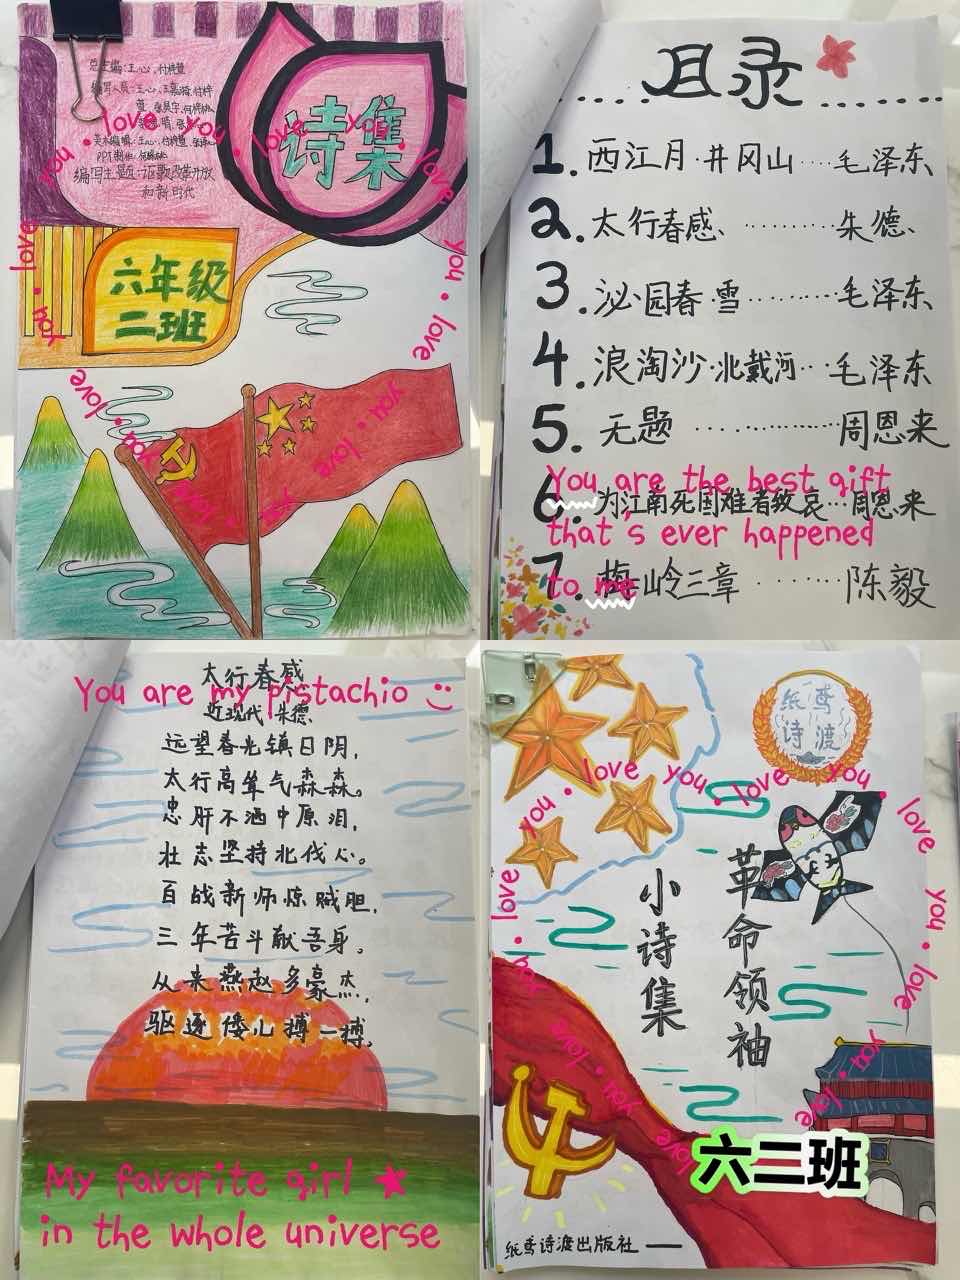 诗集
总主编:王心、付梓萱
美术编辑:王心、付梓萱
编写主题:讴歌改革开放
和新时代
六年级
二班
you • love you • love you • love you • love you • love
目录
1. 西江月·井冈山 毛泽东
2. 太行春感、········朱德、
3. 泌园春·雪········毛泽东
4. 浪淘沙·北戴河··毛泽东
5. 无题 ···············周恩来
6. 为江南死国难者致哀··周恩来
7. 梅岭三章 ········陈毅
You are the best gift
that's ever happened
to me
太行春感
You are my pistachio
近现代 朱德、
远望春光镇日阴,
太行高耸气森森。
忠肝不洒中原泪,
壮志坚持北伐心。
百战新师惊贼胆,
三年苦斗献吾身。
从来燕赵多豪杰,
驱逐倭儿搏一搏,
My favorite girl ★
in the whole universe
纸鸢
诗渡
you • love you • love you • love you • love you • love
革命领袖
小诗集
六二班
纸鸢诗渡出版社